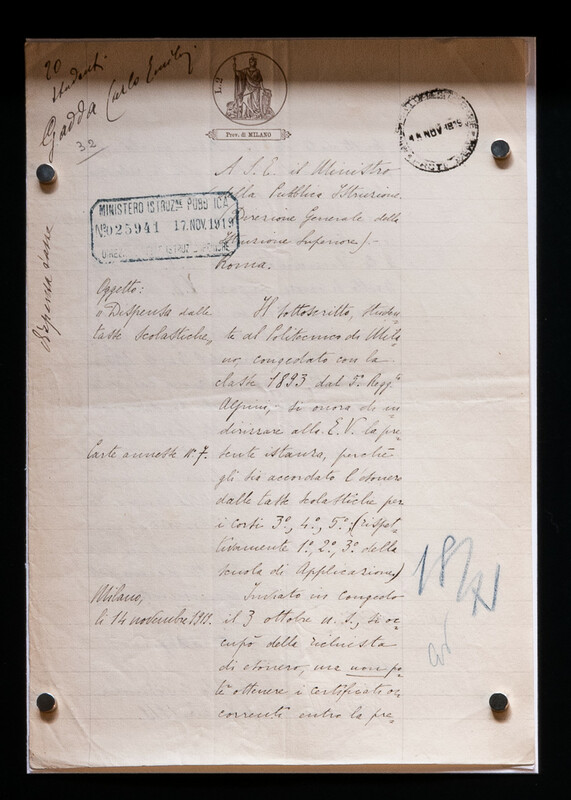 20
studenti
Gadda Carlo Emilio
32
L. 2
Prov. di MILANO
NOV 1919
MINISTERO ISTRUZ.NE PUBBLICA
No 025941 17.NOV.1919
DIREZ. ISTRUZ. SUPERIORE
A S. E. il Ministro
della Pubblica Istruzione
(Direzione Generale della
Istruzione Superiore).-
Roma.
Dispensa tasse
Oggetto:
"Dispensa dalle
tasse scolastiche,
Il sottoscritto, studen-
te del Politecnico di Mila-
no, congedato con la
classe 1893 dal 5º Regg.to
Alpini, si onora di in-
dirizzare alla E. V. la pre-
sente istanza, perchè
gli sia accordato l'esonero
dalle tasse scolastiche per
i corsi 3º, 4º, 5º (rispet-
tivamente 1º, 2º, 3º della
scuola di Applicazione.)
Carte annesse Nº 7.
Milano,
li 14 novembre 1919.
Inviato in congedo
il 3 ottobre u. s., si oc-
cupò della richiesta
di esonero, ma non po-
tè ottenere i certificati oc-
correnti entro la pre-